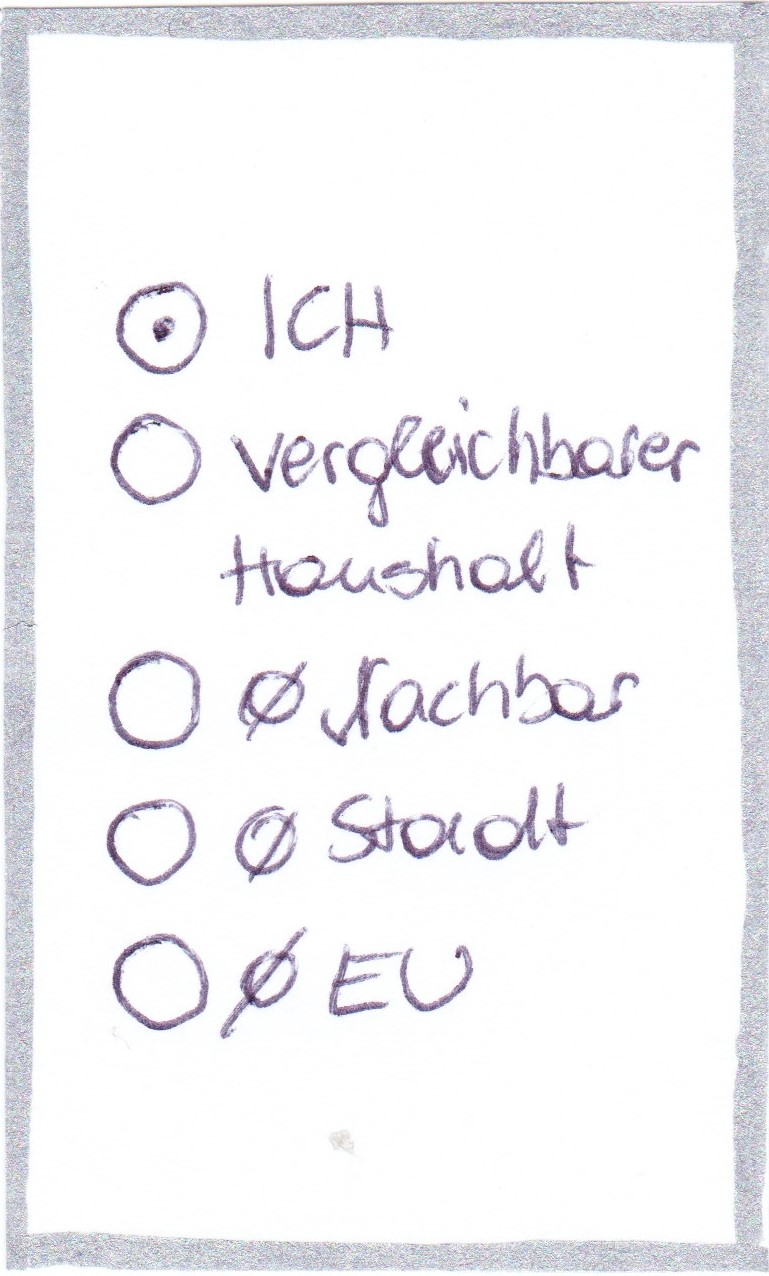 ICH
vergleichbarer
Haushalt
Ø Nachbar
Ø Stadt
Ø EU